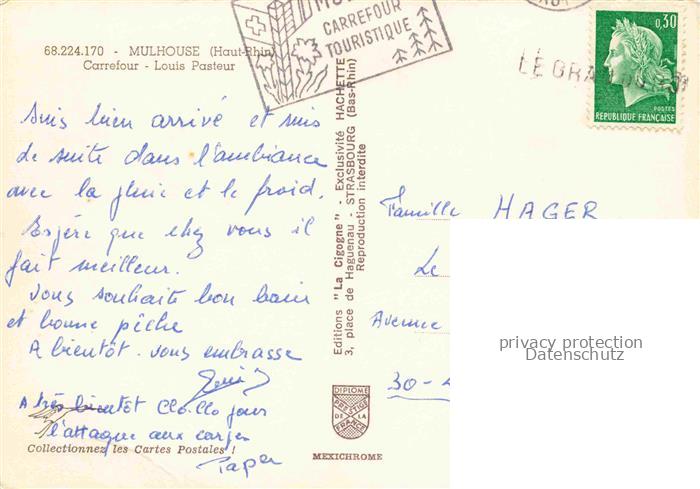 68.224.170 - MULHOUSE (Haut-Rhin)
Carrefour - Louis Pasteur
CARREFOUR
TOURISTIQUE
0,30
POSTES
REPUBLIQUE FRANÇAISE
Suis bien arrivé et suis
de suite dans l'ambiance
avec la pluie et le froid.
Espère que chez vous il
fait meilleur.
Vous souhaite bon bain
et bonne pêche
A bientôt. vous embrasse
A très bientôt Clo-Clo pour
l'attaque aux carpes
Papa
Collectionnez les Cartes Postales !
Editions "La Cigogne" - Exclusivité HACHETTE
3, place de Haguenau - STRASBOURG (Bas-Rhin)
Reproduction interdite
DIPLOME
PRESTIGE
DE LA
FRANCE
MEXICHROME
Famille HAGER
Le
Avenue
30 -
privacy protection
Datenschutz